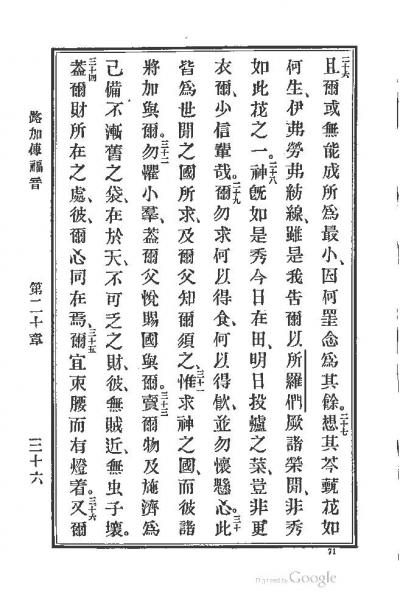 二十六
且爾或無能成所爲最小、因何罣念爲其餘。二十七想其芩蓺花如
何生、伊弗勞弗紡線、雖是我告爾以所羅們厥諧榮間、非秀
如此花之一。二十八神旣如是秀今日在田、明日投爐之菜、豈非更
衣爾、少信輩哉。二十九爾勿求何以得食、何以得飲、並勿懷懸心。三十此
皆爲世間之國所求、及爾父知爾須之、三十一惟求神之國、而彼諧
將加與爾。三十二勿懼小羣、葢爾父悅賜國與爾。三十三賣爾物及施濟爲
己備不漸舊之袋、在於天不可乏之財、彼無賊近、無虫子壞。
三十四葢爾財所在之處、彼爾心同在焉、三十五爾宜束腰而有燈著。三十六又爾
路加傳福音
第二十章
三十六
71
Digitized by Google